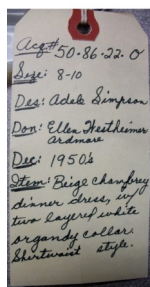 Acq# 50.86.22.0
Size: 8-10
Des: Adele Simpson
Don: Ellen Hestheimer
Ardmore
Dec: 1950's
Item: Beige chambrey
dinner dress, w/
two layered white
organdy collar.
Shirtwaist style.